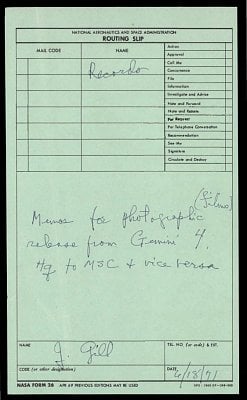 NATIONAL AERONAUTICS AND SPACE ADMINISTRATION
ROUTING SLIP
MAIL CODE
NAME
Action
Approval
Call Me
Concurrence
File
Information
Investigate and Advise
Note and Forward
Note and Return
Per Request
Per Telephone Conversation
Recommendation
See Me
Signature
Circulate and Destroy
Records
(Films)
Memos for photographic
release from Gemini 4.
Hq to MSC & vice versa
NAME
J. Gill
TEL. NO. (or code) & EXT.
CODE (or other designation)
DATE
6/18/71
NASA FORM 26 APR 69 PREVIOUS EDITIONS MAY BE USED